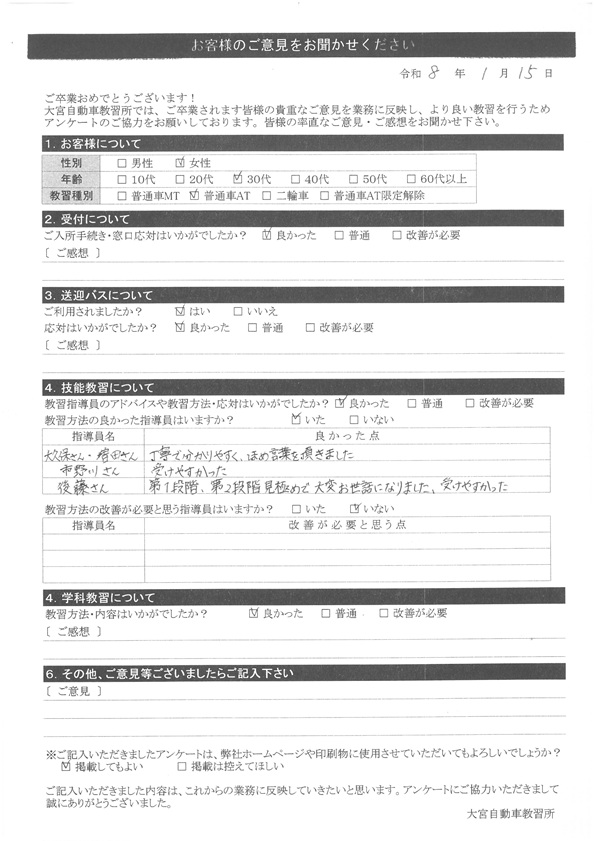 お客様のご意見をお聞かせください
令和 8 年 1 月 15 日
ご卒業おめでとうございます！
大宮自動車教習所では、ご卒業されます皆様の貴重なご意見を業務に反映し、より良い教習を行うため
アンケートのご協力をお願いしております。皆様の率直なご意見・ご感想をお聞かせ下さい。
1. お客様について
性別 □ 男性 ☑ 女性
年齢 □ 10代 □ 20代 ☑ 30代 □ 40代 □ 50代 □ 60代以上
教習種別 □ 普通車MT ☑ 普通車AT □ 二輪車 □ 普通車AT限定解除
2. 受付について
ご入所手続き・窓口応対はいかがでしたか？ ☑ 良かった □ 普通 □ 改善が必要
[ ご感想 ]
3. 送迎バスについて
ご利用されましたか？ ☑ はい □ いいえ
応対はいかがでしたか？ ☑ 良かった □ 普通 □ 改善が必要
[ ご感想 ]
4. 技能教習について
教習指導員のアドバイスや教習方法・応対はいかがでしたか？ ☑ 良かった □ 普通 □ 改善が必要
教習方法の良かった指導員はいますか？ ☑ いた □ いない
指導員名 良かった点
大久保さん・増田さん 丁寧で分かりやすく、ほめ言葉を頂きました
市野川さん 受けやすかった
後藤さん 第1段階、第2段階見極めで大変お世話になりました、受けやすかった
教習方法の改善が必要と思う指導員はいますか？ □ いた ☑ いない
指導員名 改善が必要と思う点
4. 学科教習について
教習方法・内容はいかがでしたか？ ☑ 良かった □ 普通 □ 改善が必要
[ ご感想 ]
6. その他、ご意見等ございましたらご記入下さい
[ ご意見 ]
※ご記入いただきましたアンケートは、弊社ホームページや印刷物に使用させていただいてもよろしいでしょうか？
☑ 掲載してもよい □ 掲載は控えてほしい
ご記入いただきました内容は、これからの業務に反映していきたいと思います。アンケートにご協力いただきまして
誠にありがとうございました。
大宮自動車教習所